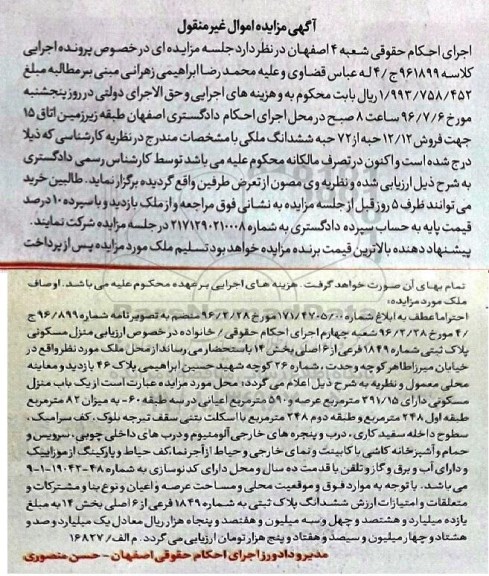 آگهی مزایده اموال غیرمنقول
اجرای احکام حقوقی شعبه ۴ اصفهان در نظر دارد جلسه مزایده ای در خصوص پرونده اجرایی
کلاسه ۹۶۱۸۹۹ج/۴ له عباس قضاوی و علیه محمد رضا ابراهیمی زهرانی مبنی بر مطالبه مبلغ
۱/۹۹۳/۷۵۸/۴۵۲ ریال بابت محکوم به و هزینه های اجرایی و حق الاجرای دولتی در روز پنجشنبه
مورخ ۹۶/۷/۶ ساعت ۸ صبح در محل اجرای احکام دادگستری اصفهان طبقه زیرزمین اتاق ۱۵
جهت فروش ۱۲/۱۲ حبه از ۷۲ حبه ششدانگ ملکی با مشخصات مندرج در نظریه کارشناسی که ذیلا
درج شده است و اکنون در تصرف مالکانه محکوم علیه می باشد توسط کارشناس رسمی دادگستری
به شرح ذیل ارزیابی شده و نظریه وی مصون از تعرض طرفین واقع گردیده برگزار نماید. طالبین خرید
می توانند ظرف ۵ روز قبل از جلسه مزایده به نشانی فوق مراجعه و از ملک بازدید و با سپرده ۱۰ درصد
قیمت پایه به حساب سپرده دادگستری به شماره ۲۱۷۱۲۹۰۲۱۰۰۰۸ در جلسه مزایده شرکت نمایند.
پیشنهاد دهنده بالاترین قیمت برنده مزایده خواهد بود تسلیم ملک مورد مزایده پس از پرداخت
تمام بهای آن صورت خواهد گرفت. هزینه های اجرایی بر عهده محکوم علیه می باشد. اوصاف
ملک مورد مزایده:
احتراما عطف به ابلاغ شماره ۱۷۱/۴۷۰۵/۰۰ مورخ ۹۶/۲/۲۸ منضم به تصویر نامه شماره ۹۶/۸۹۹ ج
/۴ مورخ ۹۶/۲/۳۸ شعبه چهارم اجرای احکام حقوقی / خانواده در خصوص ارزیابی منزل مسکونی
پلاک ثبتی شماره ۱۸۴۹ فرعی از ۶ اصلی بخش ۱۴ با استحضار می رساند از محل ملک مورد نظر واقع در
خیابان میرزاطاهر کوچه وحدت، شماره ۲۶ کوچه شهید حسین ابراهیمی پلاک ۴۶ بازدید و معاینه
محلی معمول و نظریه به شرح ذیل اعلام می گردد: محل مورد مزایده عبارت است از یک باب منزل
مسکونی دارای ۲۹۱/۱۵ مترمربع عرصه و ۵۹۰ مترمربع اعیانی در سه طبقه ۶۰- به میزان ۸۲ مترمربع
طبقه اول ۲۴۸ مترمربع و طبقه دوم ۲۴۸ مترمربع با اسکلت بتنی سقف تیرچه بلوک، کف سرامیک،
سطوح داخله سفید کاری، درب و پنجره های خارجی آلومنیوم و درب های داخلی چوبی، سرویس و
حمام و آشپزخانه کاشی با کابینت و نمای خارجی و حیاط از آجرنما کف حیاط و پارکینگ از موزاییک
و دارای آب و برق و گاز و تلفن با قدمت ده سال و محل دارای کد نوسازی به شماره ۴۸-۱۹۰۴۳-۱-۹
می باشد. با توجه به موارد فوق و موقعیت محلی و مساحت عرصه و اعیان و نوع بنا و مشترکات و
متعلقات و امتیازات ارزش ششدانگ پلاک ثبتی به شماره ۱۸۴۹ فرعی از ۶ اصلی بخش ۱۴ به مبلغ
یازده میلیارد و هشتصد و چهل و سه میلیون و هفتصد و پنجاه هزار ریال معادل یک میلیارد و صد و
هشتاد و چهار میلیون و سیصد و هفتاد و پنج هزار تومان ارزیابی می گردد. م الف/ ۱۶۸۲۷
مدیر و دادورز اجرای احکام حقوقی اصفهان - حسن منصوری